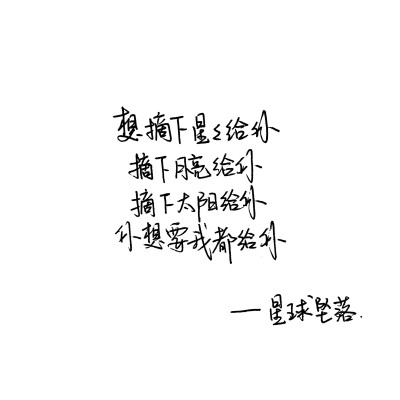 想摘下星星给你
摘下月亮给你
摘下太阳给你
你想要我都给你
——星球坠落.